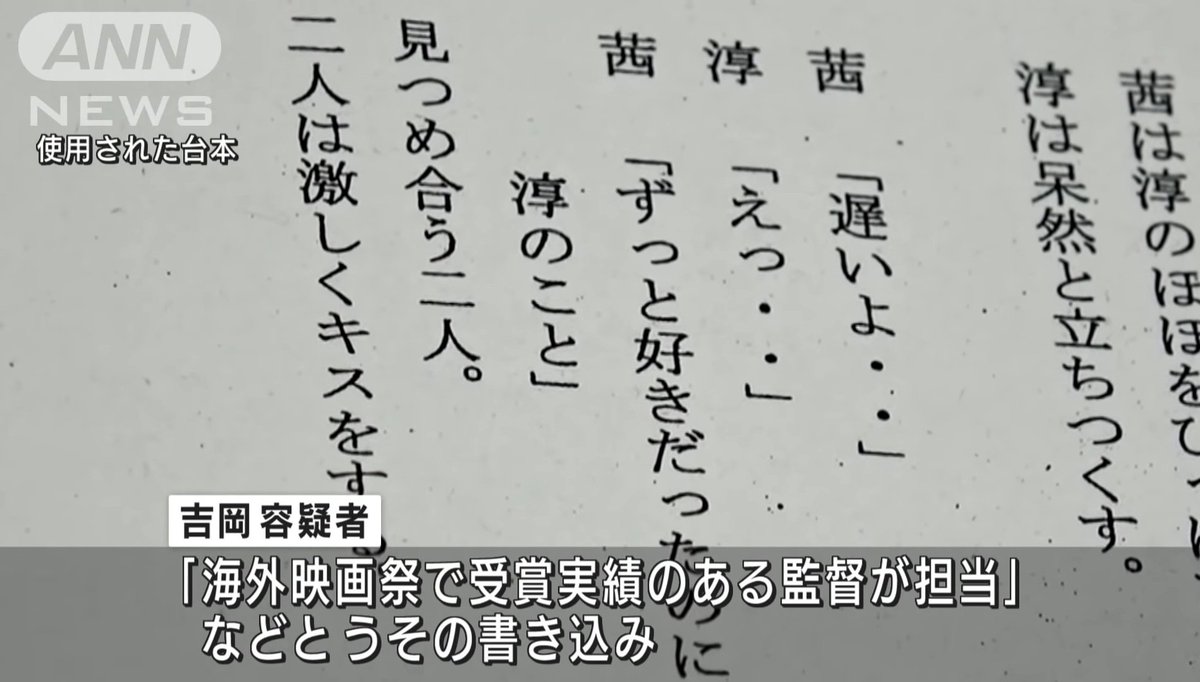 ANN
NEWS
使用された台本
茜は淳のほほをひっ
淳は呆然と立ちつくす。
茜 「遅いよ・・」
淳 「えっ・・」
茜 「ずっと好きだったのに
淳のこと」
見つめ合う二人。
二人は激しくキスをする
吉岡 容疑者
「海外映画祭で受賞実績のある監督が担当」
などと うその書き込み